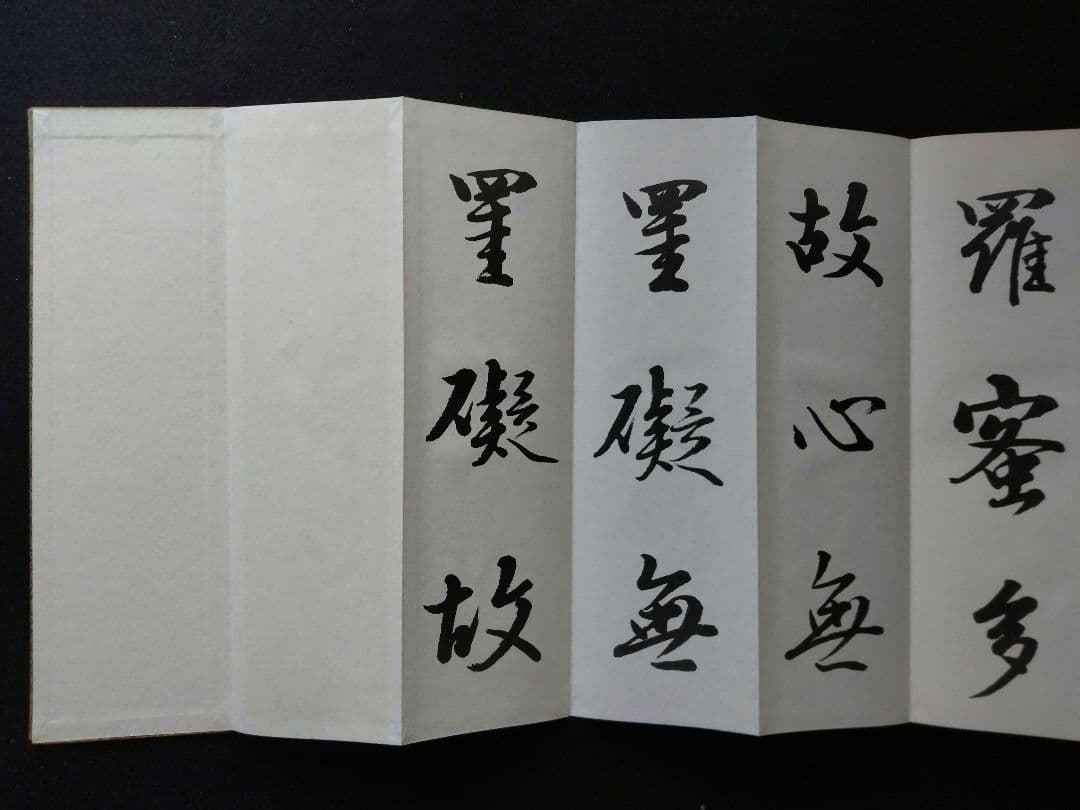 羅蜜多
故心無
罣礙無
罣礙故